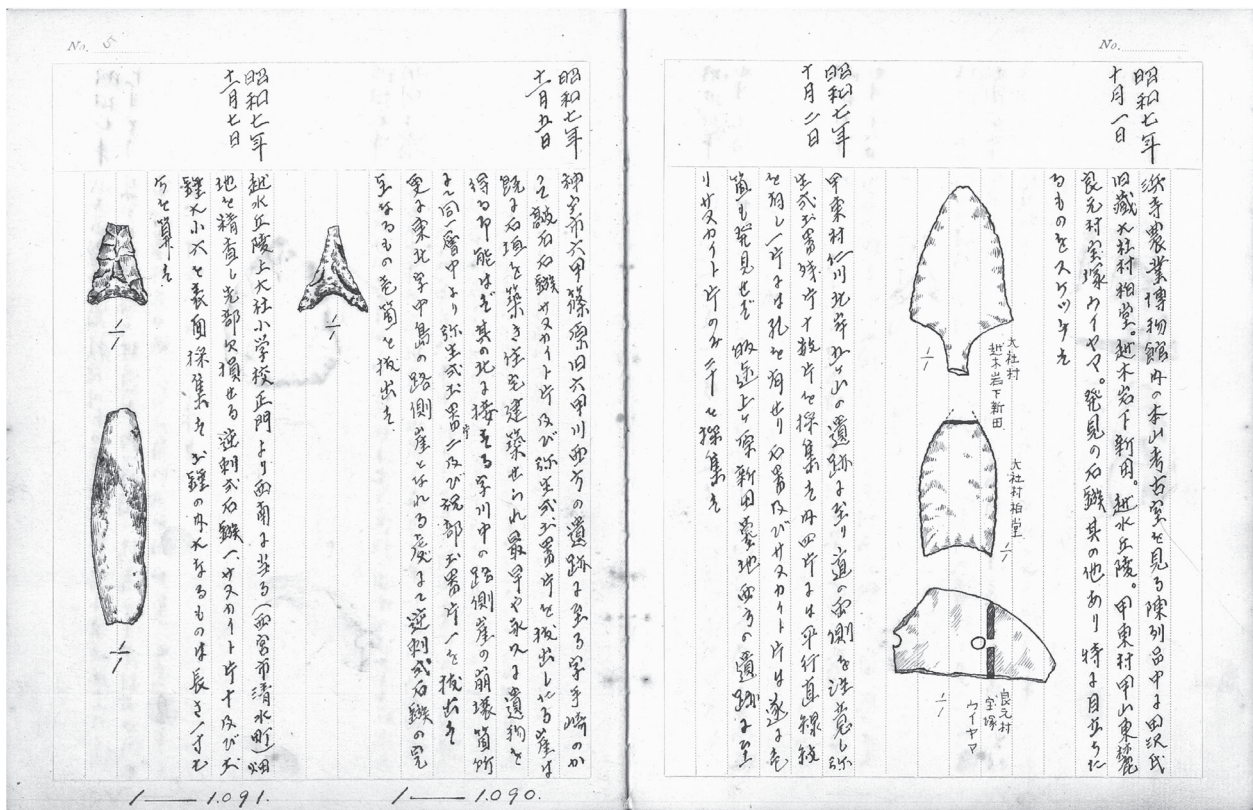 No.
昭和七年
十月一日
浜寺農業博物館内の本山考古室を見る陳列品中に田沢氏
旧蔵大社村柏堂。越木岩下新田。越水丘陵。甲東村甲山東麓
良元村宝塚ウイヤマ。発見の石鏃其の他あり特に目立ちた
るものをスケッチす
大社村
越木岩下新田
1/1
大社村柏堂
1/1
良元村
宝塚
ウイヤマ
1/1
昭和七年
十月二日
甲東村仁川北岸五ヶ山の遺跡に至り道の両側を注意し弥
生式土器残片十数片を採集す内四片には平行直線紋
を有し一片には孔を有せり石器及びサヌカイト片は遂に壱
箇も発見せず 帰途上ヶ原新田墓地西方の遺跡に至
りサヌカイト片のみ二十を採集す
No. 5
昭和七年
十一月五日
神戸市六甲篠原旧六甲川西方の遺跡に至る字手崎のか
つて敲石石鏃サヌカイト片及び弥生式土器片を抜出したる崖は
既に石垣を築き住宅建築せられ最早や永久に遺物を
得る事能はず其の北に接する字川中の路側崖の崩壊箇所
に同一層中より弥生式土器片二及び祝部土器片一を抜出す
更に東北字中島の路側崖となれる処にて逆刺式石鏃の完
全なるもの壱箇を抜出す
1/1
昭和七年
十一月七日
越水丘陵上大社小学校正門より西南に当る(西宮市清水町)畑
地を精査し先部欠損せる逆刺式石鏃一サヌカイト片十及び土
錘大小六を表面採集す土錘の内大なるものは長さ一寸七
分を算す
1/1
1/1
1——1.091.
1——1.090.